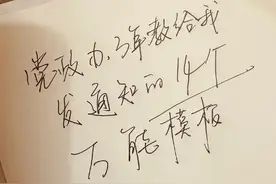 党政办3年教给我
发通知的14个
万能模板